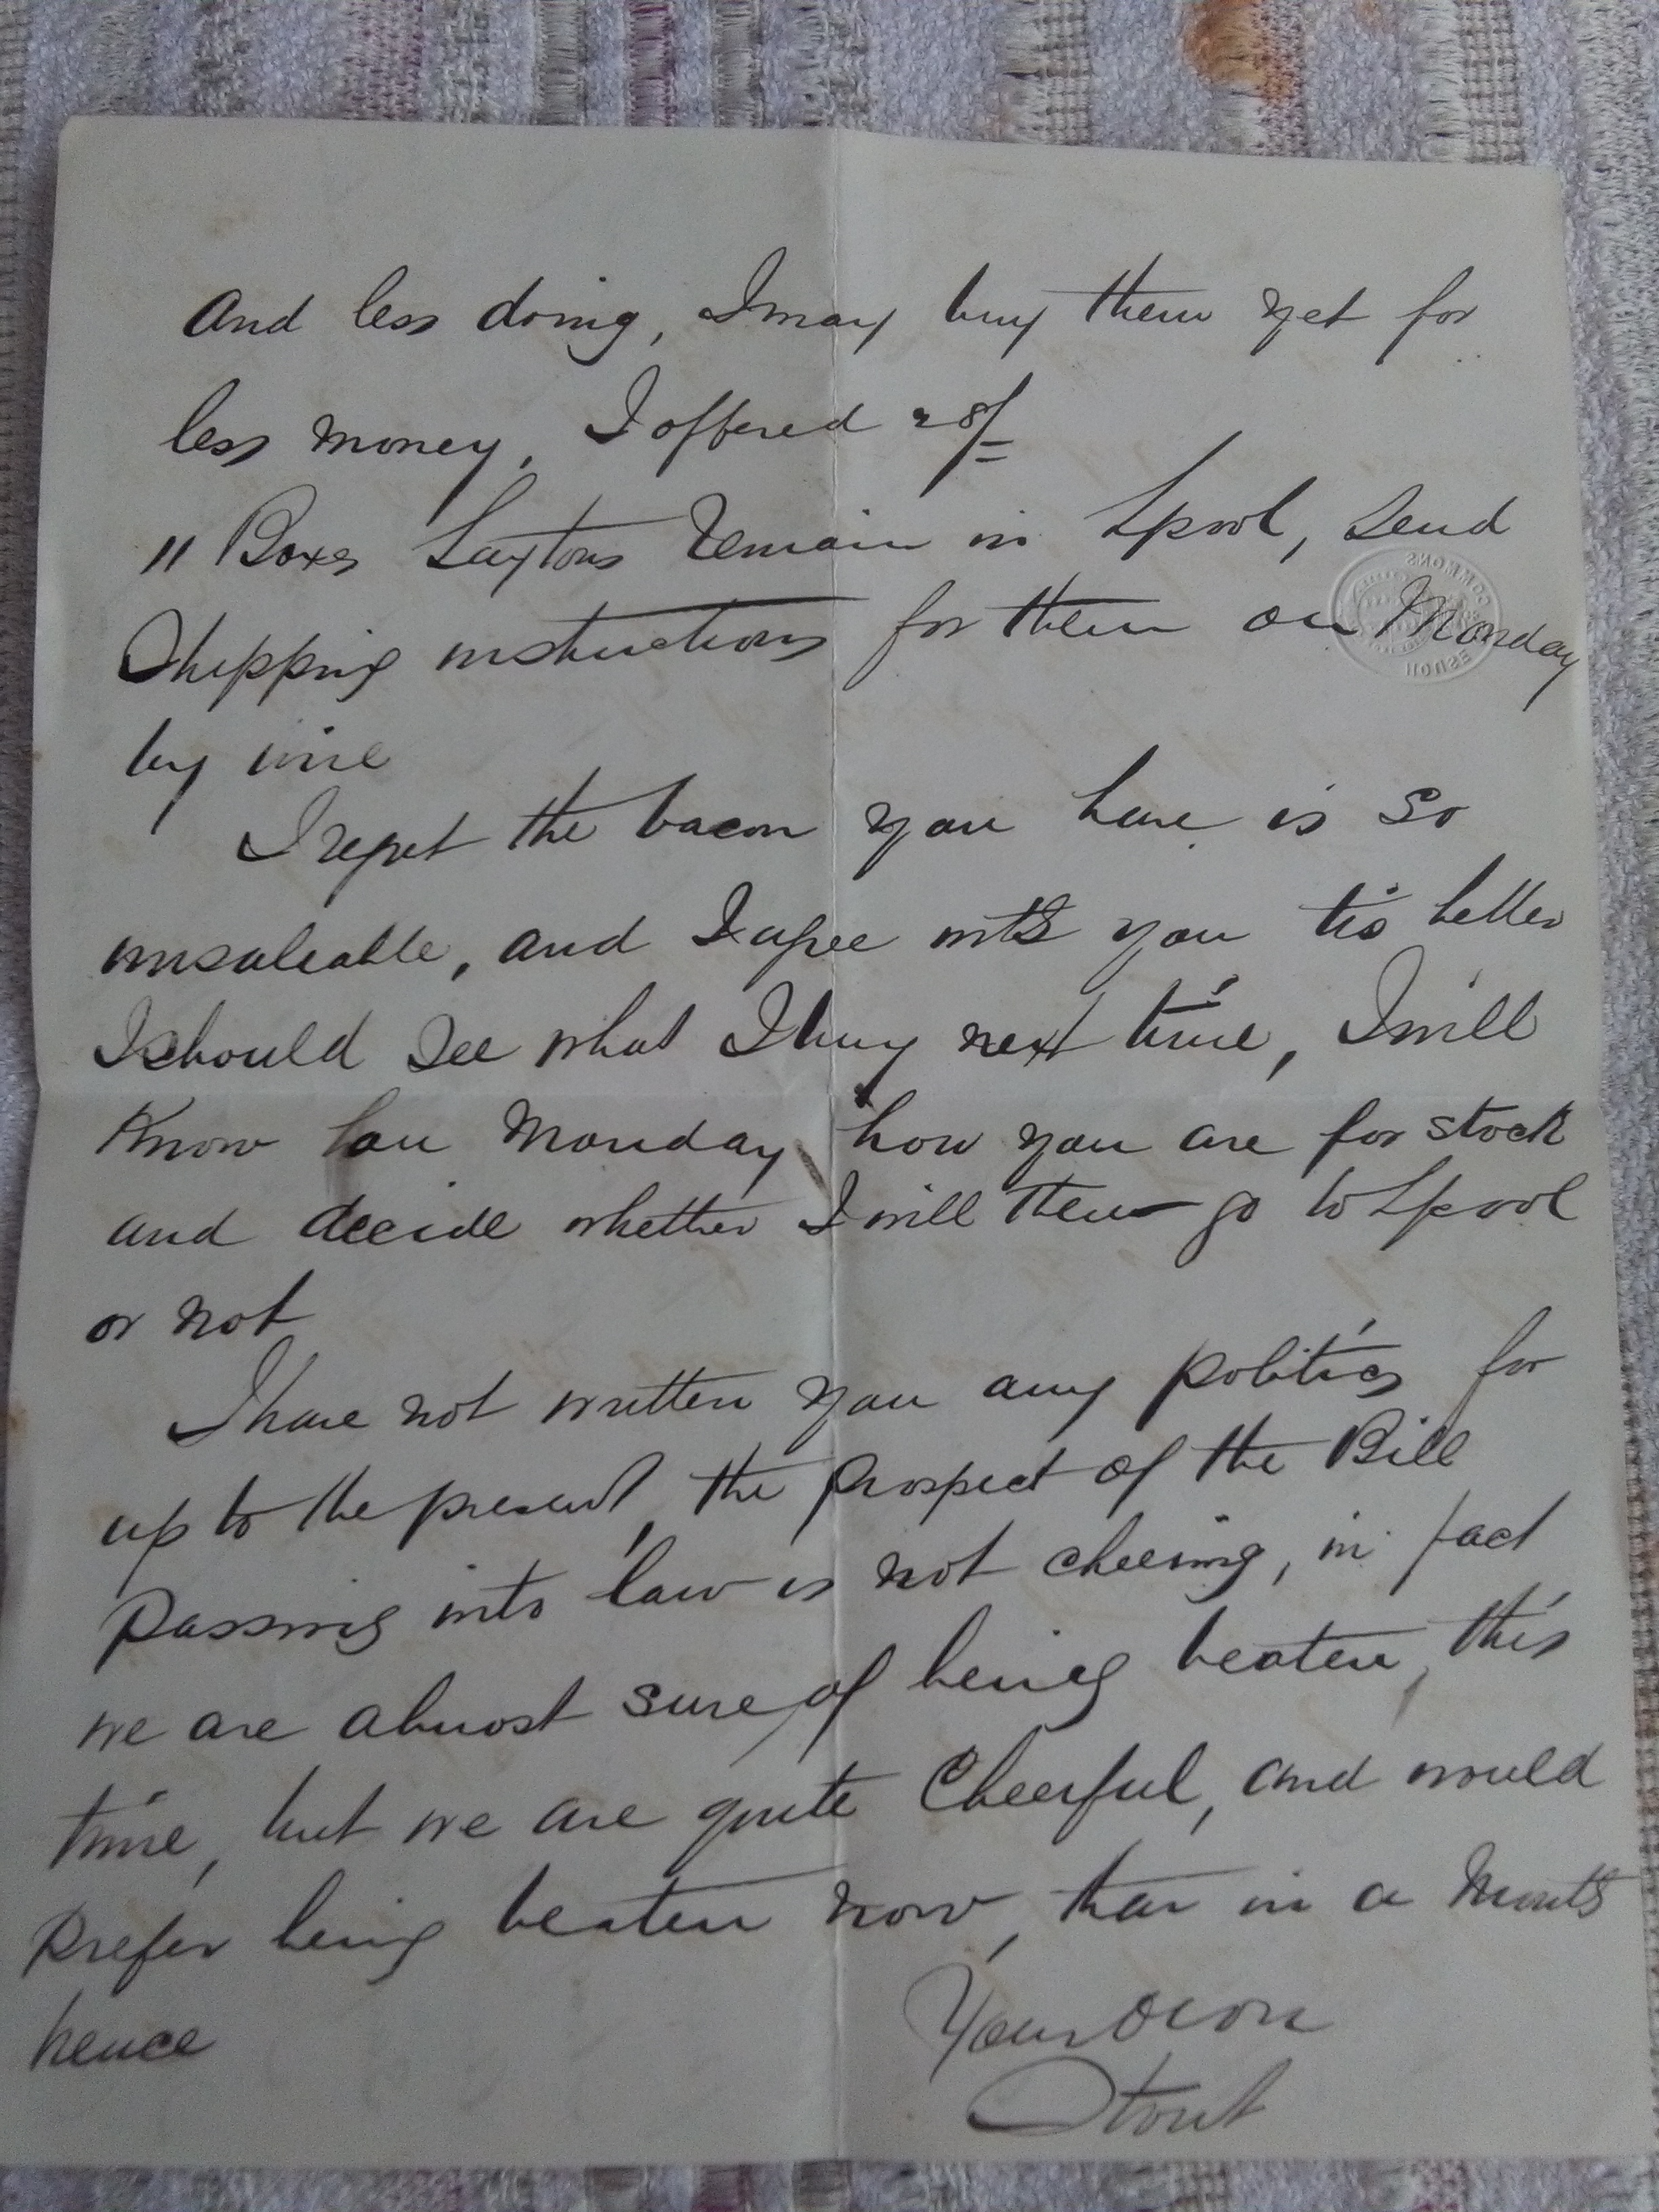 And less doing, I may buy them yet for
less money, I offered 28/=
11 Boxes Laytons Remain in Lpool, Send
Shipping instructions for them on Monday
by wire
I regret the bacon you have is so
unsaleable, and I agree with you tis better
I should See what I buy next time, I will
Know on Monday how you are for stock
and decide whether I will then go to Lpool
or not
I have not written you any politics for
up to the present, the prospect of the Bill
passing into law is not cheering, in fact
we are almost sure of being beaten, this
time, but we are quite Cheerful, and would
prefer being beaten now, than in a Month
hence
Your own
Stout
COMMONS